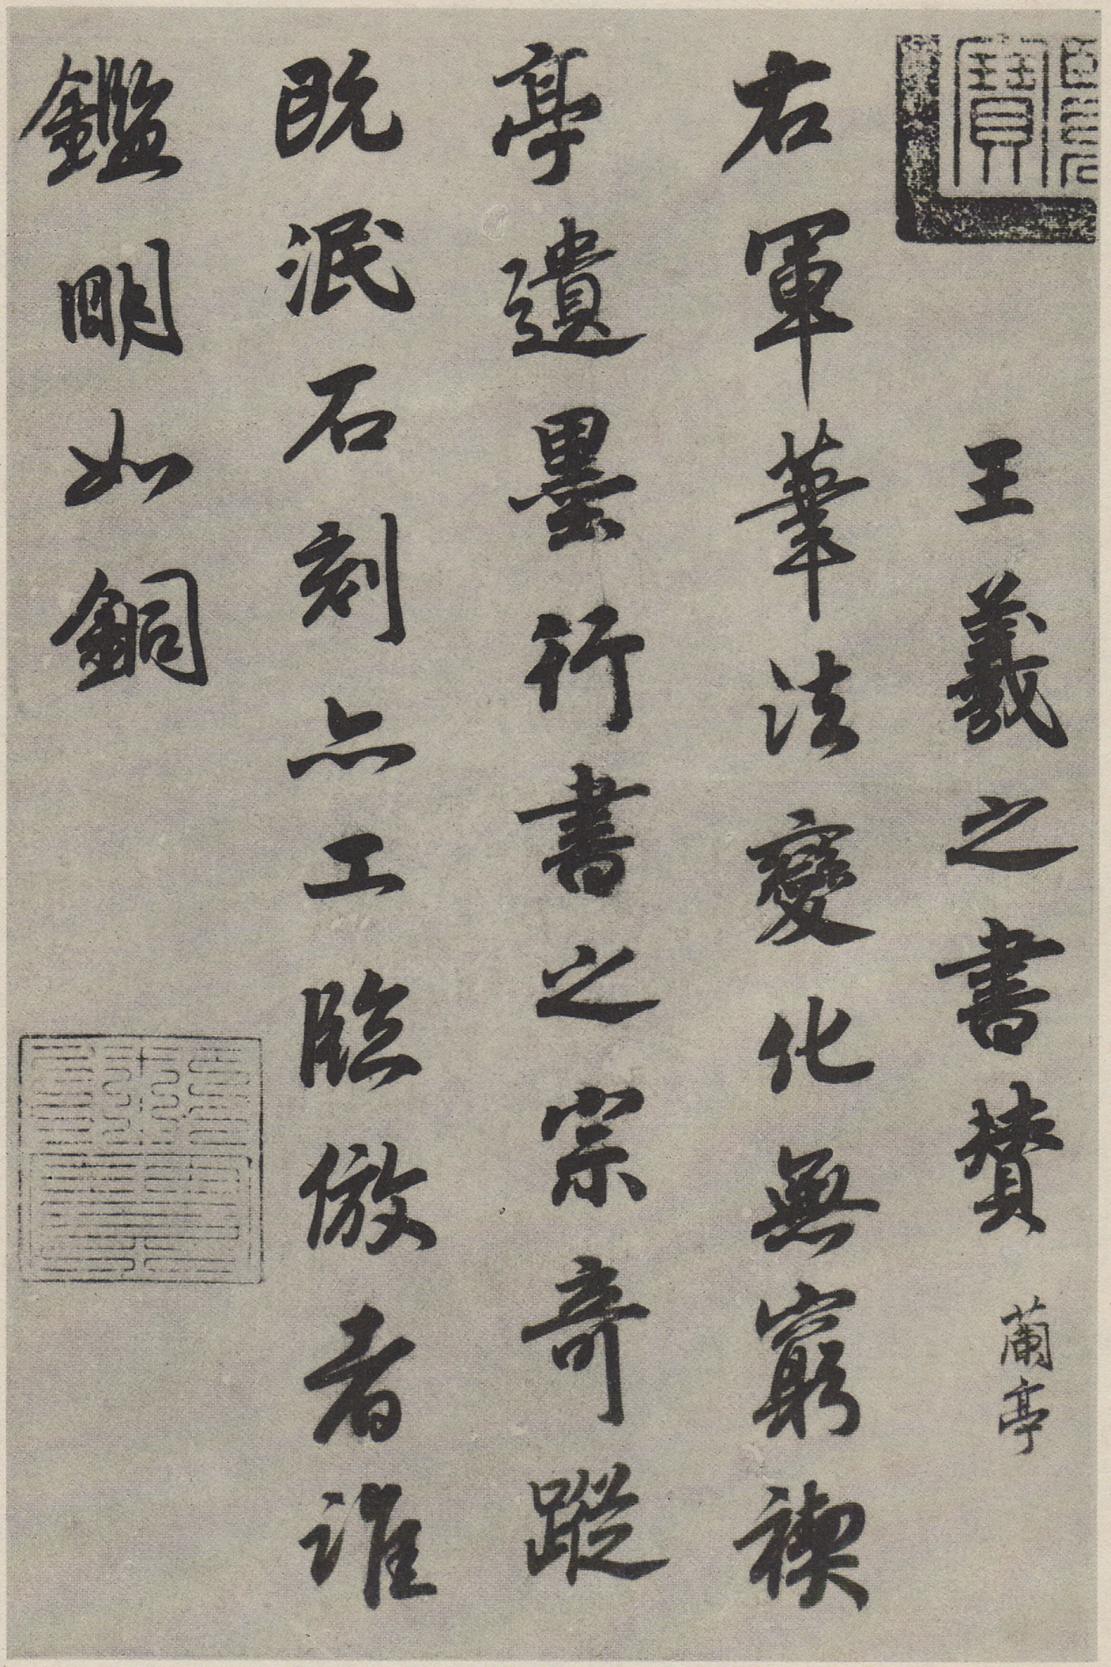 王羲之書贊 蘭亭
右軍筆法變化無窮禊
亭遺墨行書之宗奇蹤
既泯石刻亦工臨倣者誰
鑑明如銅
寶